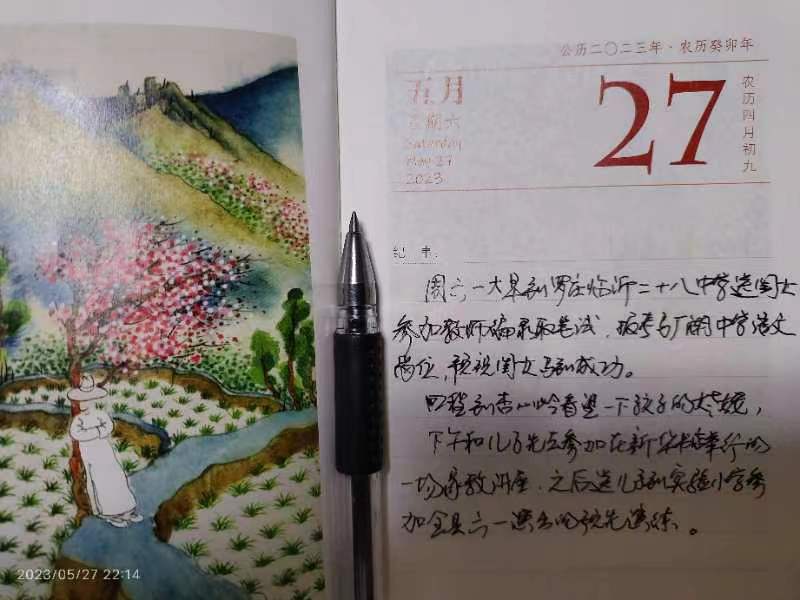 公历二〇二三年·农历癸卯年
五月
星期六
Saturday
May 27
2023
27
农历四月初九
纪事：
周六一大早到罗庄临沂二十八中学送闺女
参加教师编录取笔试，报考的中学语文
岗位，预祝闺女马到成功。
回程到杏山岭看望一下孩子的姥姥，
下午和儿子先去参加在新华书店举行的
一场家教讲座，之后送儿子到实验小学参
加全县六一演出的预先演练。
2023/05/27 22:14